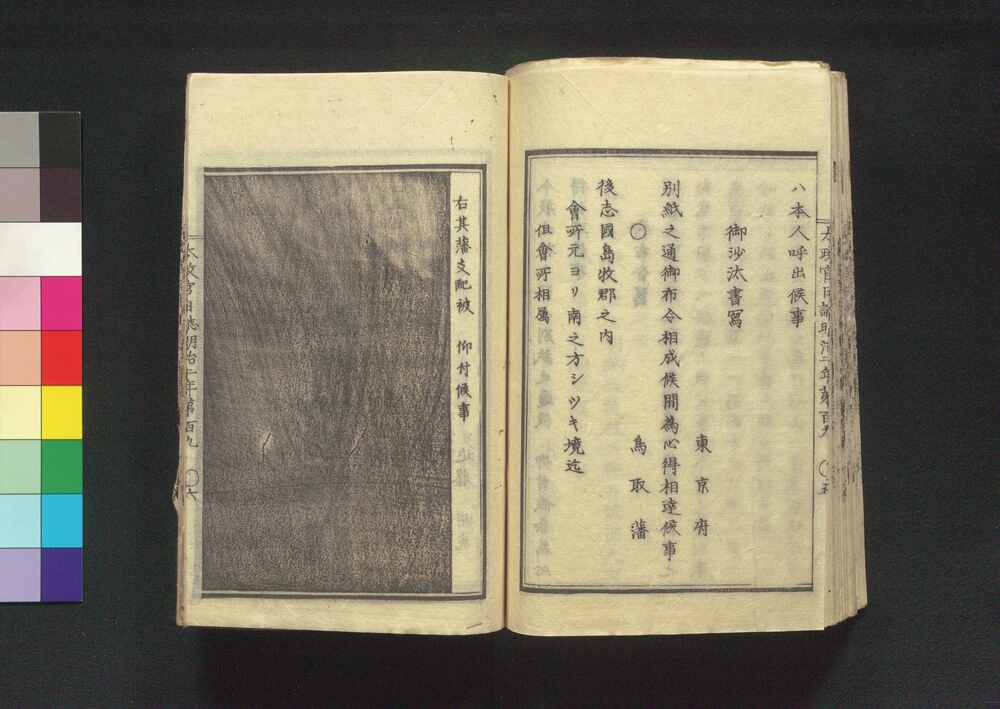 太政官日誌明治二年第百九 〇五
ハ本人呼出候事
御沙汰書写
東京府
別紙之通御布令相成候間為心得相達候事
〇 鳥取藩
後志國島牧郡之内
會所元ヨリ南之方シツキ境迄
但會所相属
右其藩支配被 仰付候事
太政官日誌明治二年第百九 〇六